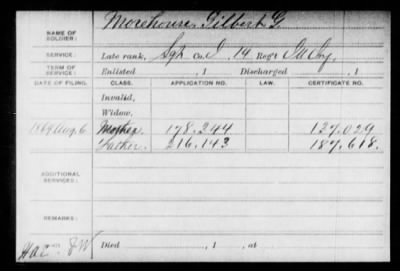 Morehouse, Gilbert G.
NAME OF SOLDIER:
SERVICE: Late rank, Sgt Co. I, 19 Reg't Ill Inf.
TERM OF SERVICE: Enlisted , 1 Discharged , 1
DATE OF FILING. CLASS. APPLICATION NO. LAW. CERTIFICATE NO.
Invalid,
Widow,
1869 Aug. 6 Mother 178.244 137.029
Father. 216.143 187.618.
ADDITIONAL SERVICES:
REMARKS:
Died , 1 , at